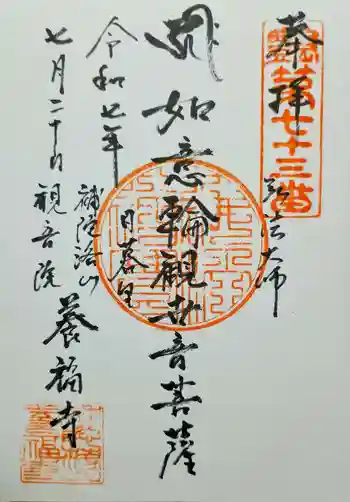 奉拝
第七十三番
弘法大師
如意輪觀世音菩薩
日暮里
令和七年
補陀洛山
七月二十日
観音院
養福寺